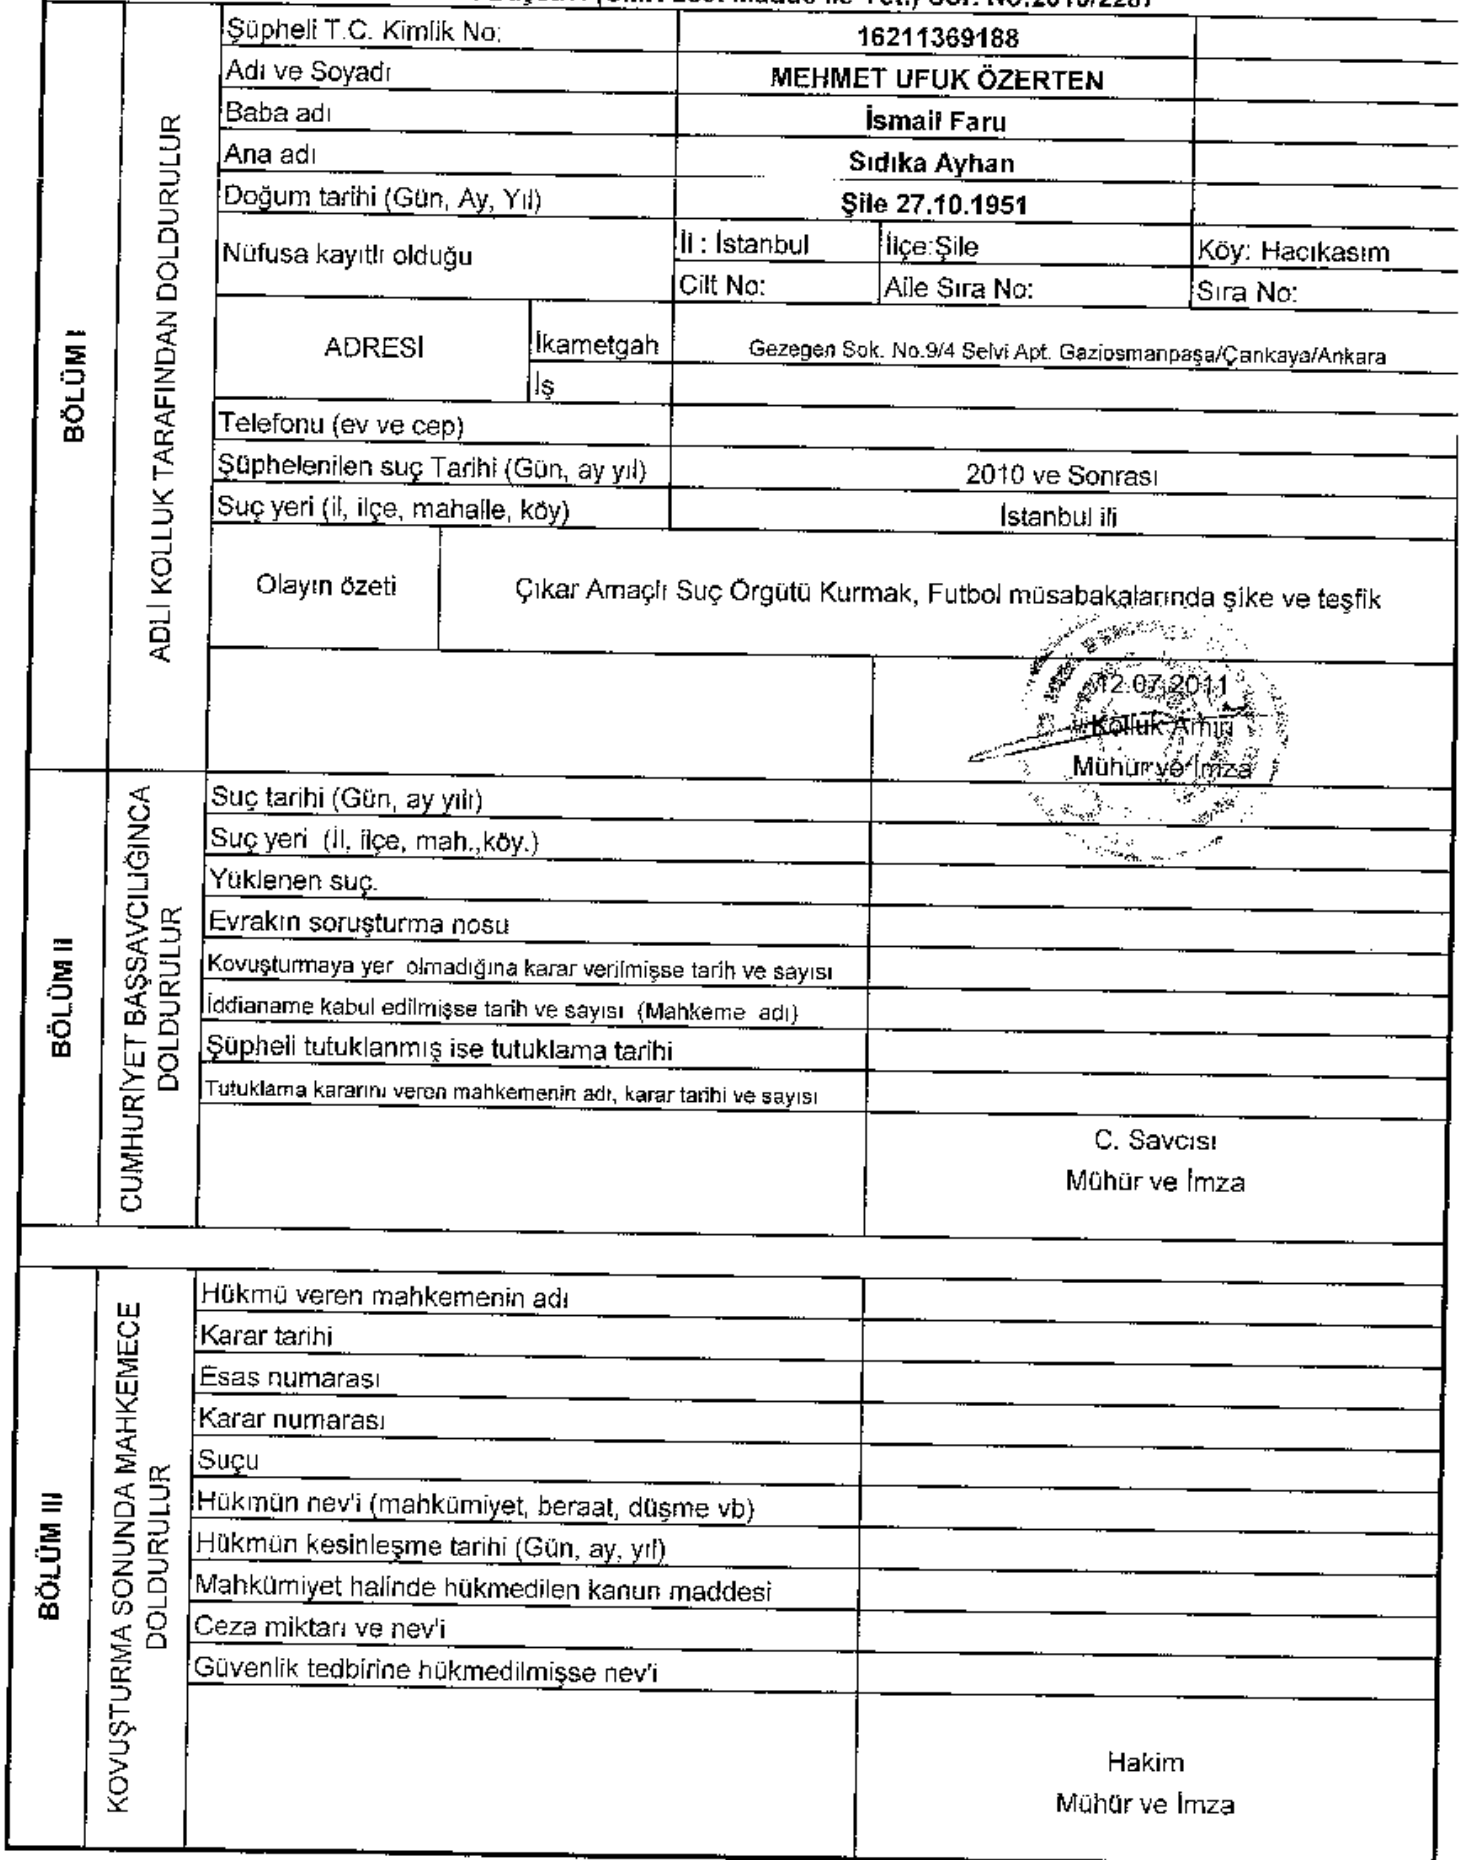 Sor. No:2010/2287
Şüpheli T.C. Kimlik No: 16211369188
Adı ve Soyadı MEHMET UFUK ÖZERTEN
Baba adı İsmail Faru
Ana adı Sıdıka Ayhan
Doğum tarihi (Gün, Ay, Yıl) Şile 27.10.1951
Nüfusa kayıtlı olduğu
İl : İstanbul İlçe:Şile Köy: Hacıkasım
Cilt No: Aile Sıra No: Sıra No:
ADRESİ
İkametgah Gezegen Sok. No.9/4 Selvi Apt. Gaziosmanpaşa/Çankaya/Ankara
İş
Telefonu (ev ve cep)
Şüphelenilen suç Tarihi (Gün, ay yıl) 2010 ve Sonrası
Suç yeri (il, ilçe, mahalle, köy) İstanbul ili
Olayın özeti Çıkar Amaçlı Suç Örgütü Kurmak, Futbol müsabakalarında şike ve teşfik
12.07.2011
Kolluk Amiri
Mühür ve İmza
BÖLÜM I
ADLİ KOLLUK TARAFINDAN DOLDURULUR
Suç tarihi (Gün, ay yılı)
Suç yeri (İl, ilçe, mah.,köy.)
Yüklenen suç.
Evrakın soruşturma nosu
Kovuşturmaya yer olmadığına karar verilmişse tarih ve sayısı
İddianame kabul edilmişse tarih ve sayısı (Mahkeme adı)
Şüpheli tutuklanmış ise tutuklama tarihi
Tutuklama kararını veren mahkemenin adı, karar tarihi ve sayısı
C. Savcısı
Mühür ve İmza
BÖLÜM II
CUMHURİYET BAŞSAVCILIĞINCA
DOLDURULUR
Hükmü veren mahkemenin adı
Karar tarihi
Esas numarası
Karar numarası
Suçu
Hükmün nev'i (mahkümiyet, beraat, düşme vb)
Hükmün kesinleşme tarihi (Gün, ay, yıl)
Mahkümiyet halinde hükmedilen kanun maddesi
Ceza miktarı ve nev'i
Güvenlik tedbirine hükmedilmişse nev'i
Hakim
Mühür ve İmza
BÖLÜM III
KOVUŞTURMA SONUNDA MAHKEMECE
DOLDURULUR